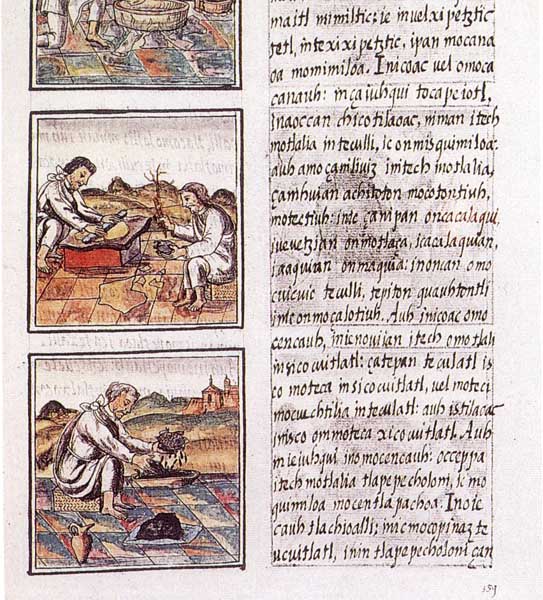 maitl mimiltic; ie inuelxipetztic
tetl, intexixipetztic, ipan mocana
oa momimiloa. Inicoac uel omoca
canauh: inçaiuhqui tocapeiotl,
inaoccan chicotilaoac, niman itech
motlalia inteculli, ic onmisquimiloa:
auh amo çaniliviz initech motlalia,
çanihuian achitoton mocotontiuh,
motectiuh: inic çanipan oncacalaqui,
ivevetzian onmotlaça, icacalaquian,
iaaquian onmaquia: inoncan omo
cuicuic teculli, tepiton quauhtontli
inic onmocalotiuh. Auh inicoac omo
cencauh, inic novijan itech omotlali
insicocuitlatl: çatepan teculatl is
co moteca insicocuitlatl, vel moteci
mocuechtilia inteculatl: auh istilaoac
inisco ommoteca xicocuitlatl. Auh
in ie iuhqui inomocencauh: occeppa
itech motlalia tlapepecholoni, ic mo
quimiloa mocentlapachoa. Inoie
cauh tlachioalli; inic mocopinaz te
ucuitlatl, inin tlapepecholoni çan
159